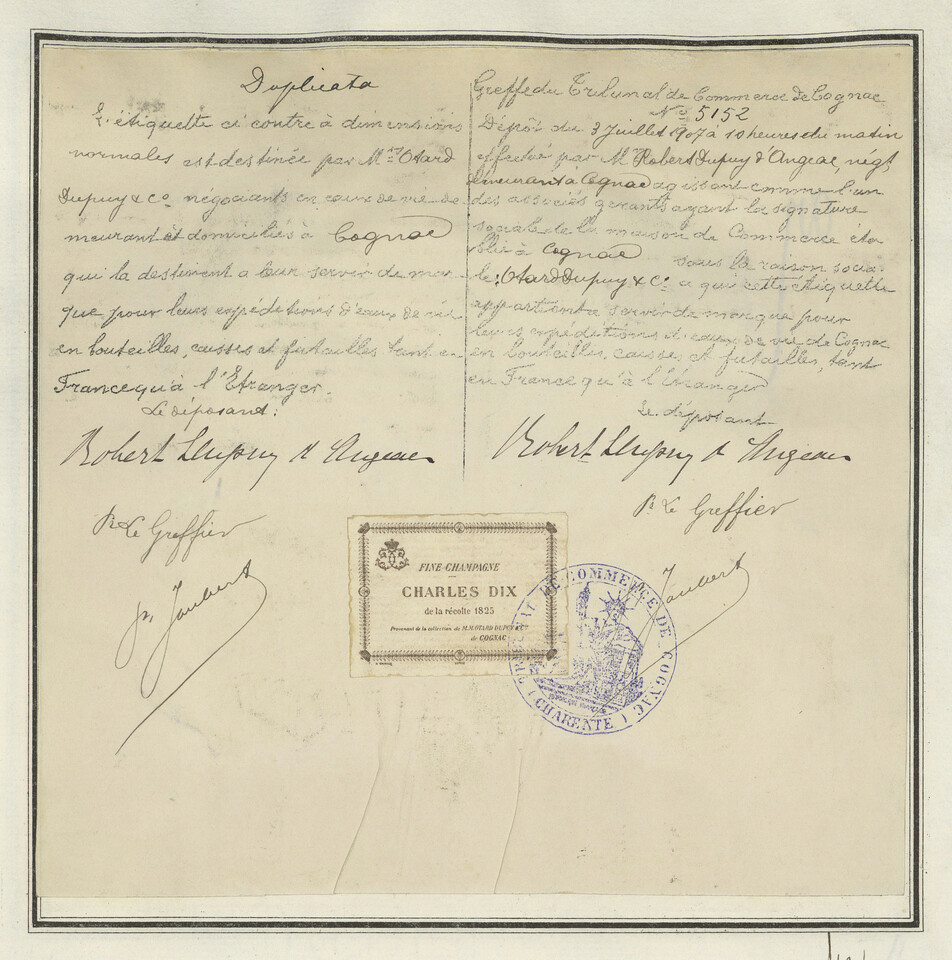 Duplicata
L'étiquette ci contre à dimensions
normales est destinée par Mrs Otard
Dupuy & Co négociants en eaux de vie de
meurant et domiciliés à Cognac
qui la destinent a leur servir de mar-
que pour leurs expéditions d'eaux de vie
en bouteilles, caisses et futailles tant en
France qu'à l'Etranger.
Le déposant:
Robert Dupuy d'Angeac
Pr Le Greffier
Joubert
Greffe du Tribunal de Commerce de Cognac
No 5152
Dépôt du 3 Juillet 1907 à 10 heures du matin
effectué par Mr Robert Dupuy d'Angeac, négt
demeurant à Cognac agissant comme l'un
des associés gérants ayant la signature
sociale de la maison de Commerce éta-
blie à Cognac sous la raison socia-
le: Otard Dupuy & Co a qui cette étiquette
appartient a servir de marque pour
leurs expéditions d'eaux de vie de Cognac
en bouteilles, caisses et futailles, tant
en France qu'à l'Etranger
Le déposant
Robert Dupuy d'Angeac
Pr Le Greffier
Joubert
FINE-CHAMPAGNE
CHARLES DIX
de la récolte 1825
Provenant de la collection de M.M. OTARD DUPUY & Co
de COGNAC
TRIBUNAL DE COMMERCE DE COGNAC
(CHARENTE)